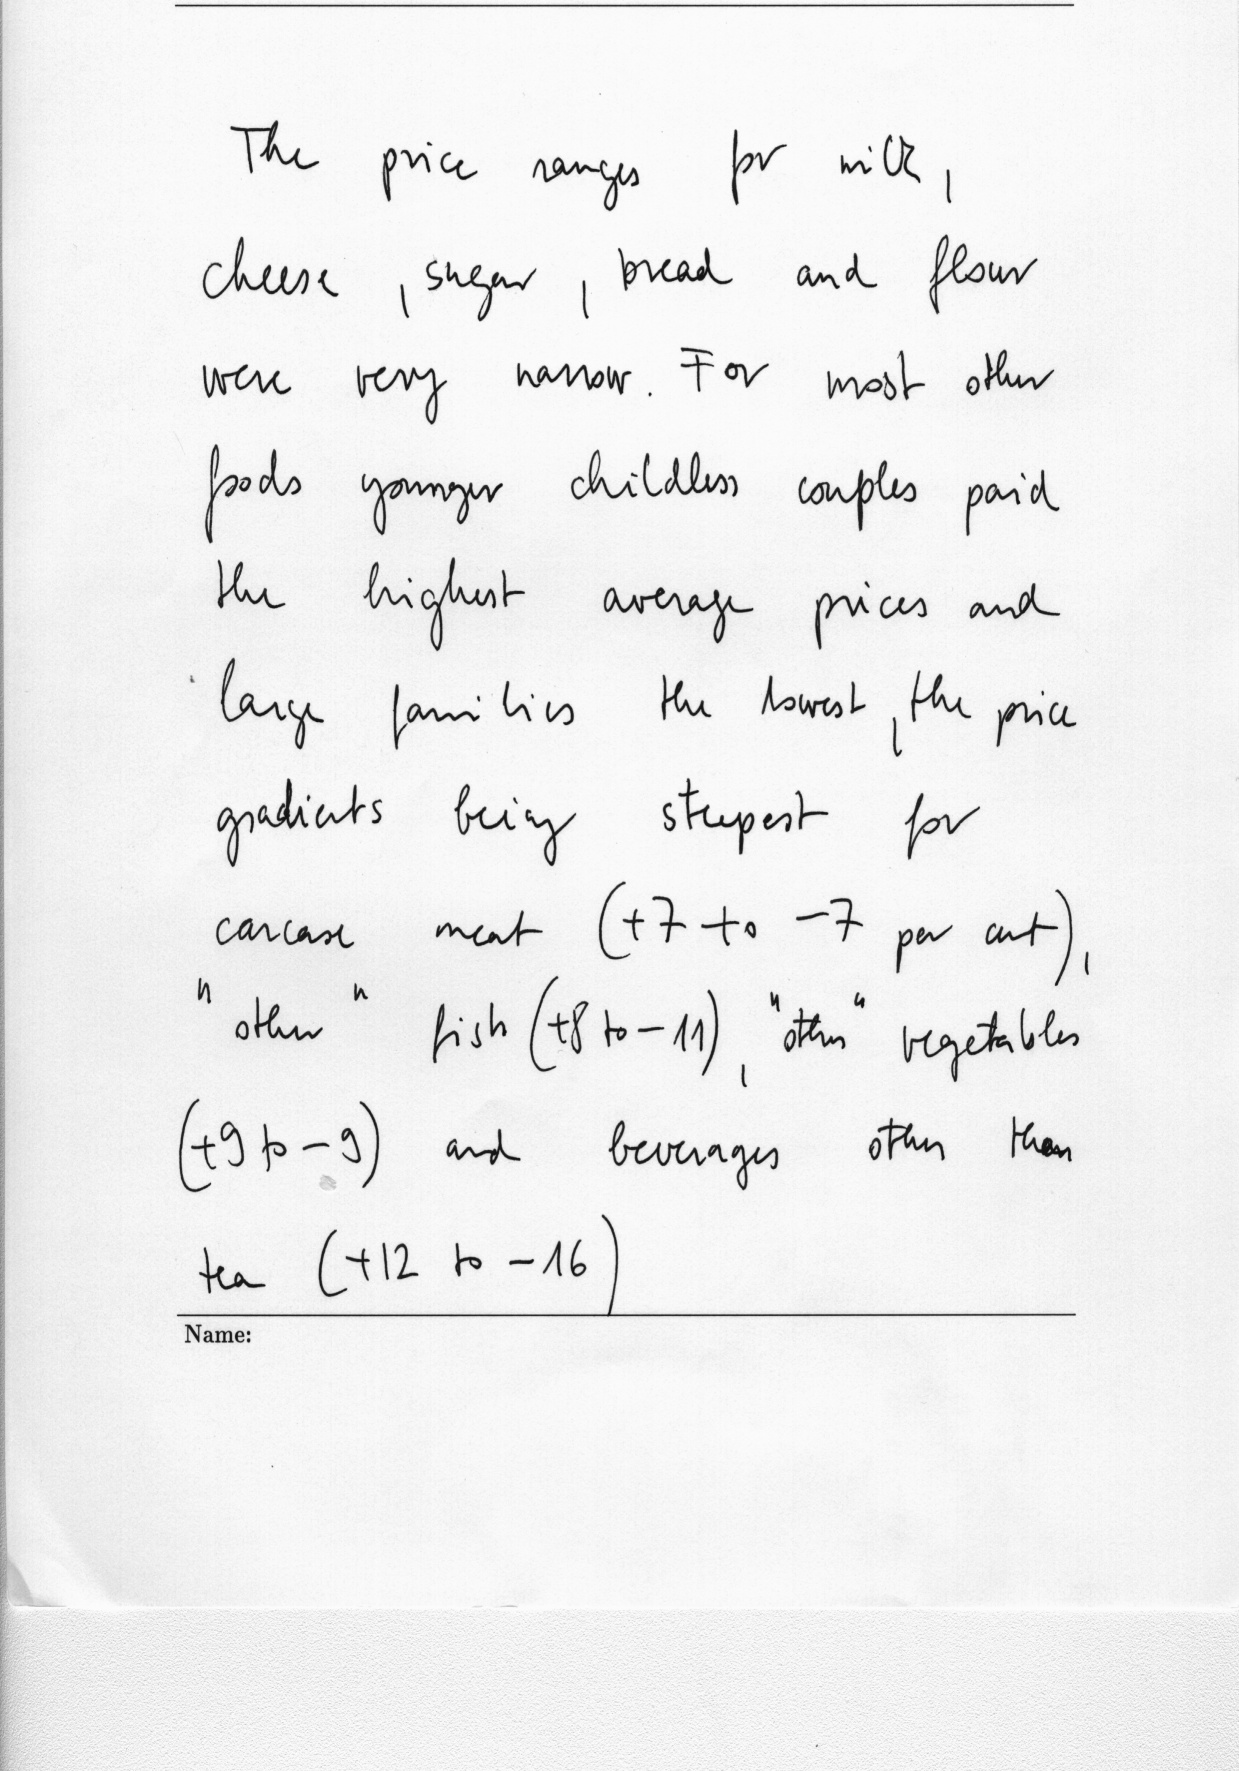 The price ranges for milk,
cheese, sugar, bread and flour
were very narrow. For most other
foods younger childless couples paid
the highest average prices and
large families the lowest, the price
gradients being steepest for
carcase meat (+7 to -7 per cent),
"other" fish (+8 to -11), "other" vegetables
(+9 to -9) and beverages other than
tea (+12 to -16)
Name: